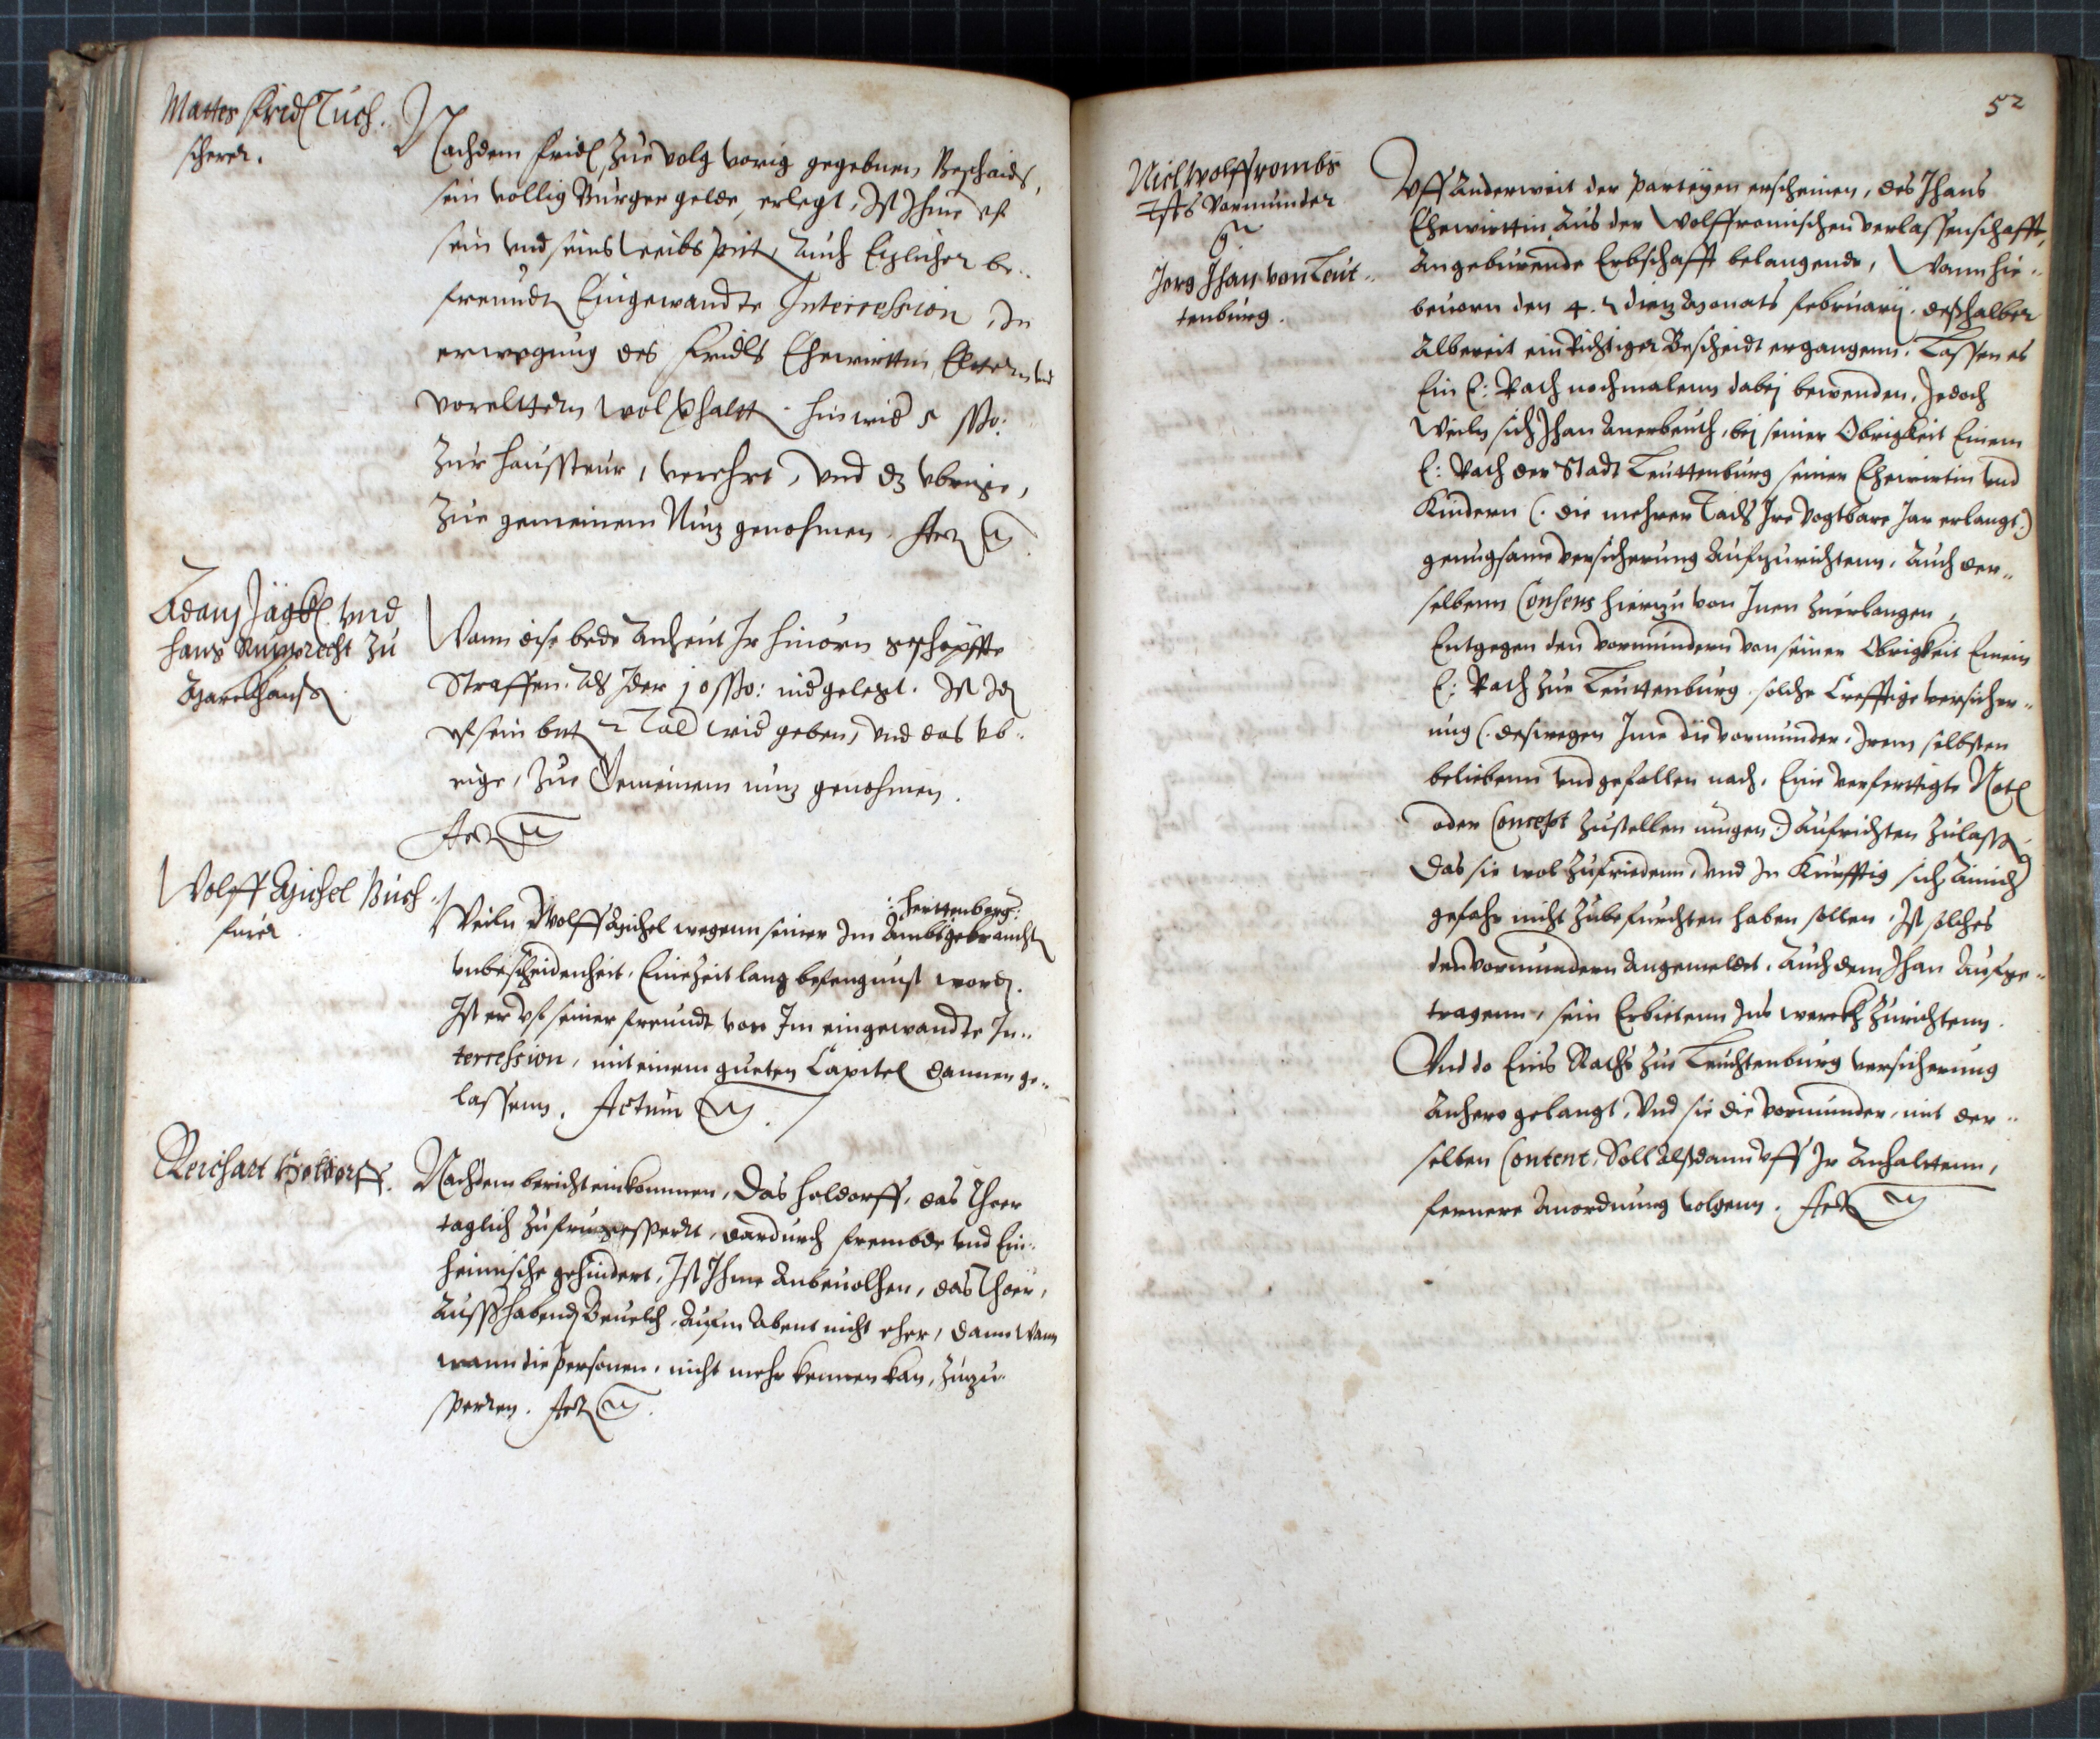 Mattes Fridl Tuch-
scherer.
Nachdem Fridl Zue volg vorig gegebnen Beschaids,
sein vollig Burger geldt, erlegt, Ist Ihme vf
sein vnd seins Weibs pitt, Auch Etzlicher be-
freundt Eingewandte Intercession, In
erwegung des Fridls Ehewirttin, Eltern vnd
vorelttern wol hinwid 5 ßo:
Zur haußsteur, verehrt, vnd dz vbrige,
Zue gemeinem Nuz genohmen. Act
Adam Jägkl vnd
hans Rupprecht Zu
Wann dise bede Anheut Ir hieuorn geschöpffte
Straffen. Als Jder 10 ßo: nidgelegt. Ist Jd
vf sein bit 2 Tald wid geben, vnd das vb-
rige, Zue Gemeinem nuz genohmen.
Act
Wolff Michel Büch-
fürer
: herttenberg:
Weiln Wolff Michel wegenn seiner Im Ambt gebraucht
vnbescheidenheit, Eine Zeit lang befengnust word.
Ist er vf seiner freundt vor Im eingewandte In-
tercession, mit einem gueten Capitel dannen ge-
lassenn. Actum
Reichart Holdorff.
Nachdem bericht einkommen, Das Holdorff, das Thor
taglich Zu frue gesperrt, dardurch frembde vnd Ein-
heimische gehindert, Ist Ihme Anbeuolhen, das Thor,
Auffm Abent nicht eher, dann Wann
wann die personen, nicht mehr kennen kan, Zuzu-
sperren. Act
52
Nicl Wolfframbs
Vormunder
Jorg Jhan von Leut-
tenburg.
Vff Anderweit der Parteyen erscheinen, des Jhans
Ehewirttin Aus der Wolfframischen verlassenschafft,
Angeburende Erbschafft belangende, Wann hie-
beuorn den 4. diez Monats Februarij deßhalber
Albereit ein Richtiger Bescheidt ergangenn. Lassen es
Ein E: Rath nochmalenn dabej bewenden, Jedoch
Weiln sich Jhan Anerbeuth, bej seiner Obrigkeit Einem
E: Rath der Stadt Leuttenburg seiner Ehewirtin vnd
Kindern (. die mehrer Tails Ire Vogtbare Jar erlangt.)
genugsame versicherung Aufzurichtenn, Auch der-
selbenn Consens hierzu von Inen Zuerlangen,
Entgegen den vormundern von seiner Obrigkeit Einem
E: Rath Zue Leuttenburg solche Crefftige versicher-
ung (. deswegen Ime die vormunder, Irem selbsten
beliebenn vnd gefallen nach, Eine verferttigte Notl
oder Concept Zustellen mugen.) Aufrichten Zulassen,
Das sie wol Zufriedenn, vnd In Kunfftig sich Ainich
gefahr nicht Zubefurchten haben sollen, Ist solches
den vormundern Angemeldet, Auch dem Jhan Aufge-
tragenn, sein Erbietenn Ins werckh Zurichtenn.
Vnd do Eins Raths Zue Leuchtenburg versicherung
Anhero gelangt, Vnd sie die vormunder, mit der-
selben Content, Soll Alßdann vff Ir Anhalttenn,
fernere Anordnung volgenn. Act